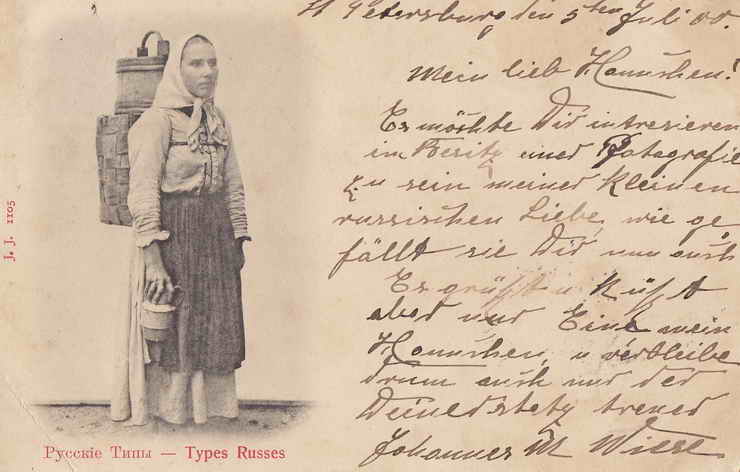 St Petersburg den 5ten Juli 00.
Mein lieb Hannchen!
Es möchte Dir intresieren
im Besitz einer Fotografie
zu sein meiner kleinen
russischen Liebe, wie ge
fällt sie Dir nun auch
Es grüßt u küßt
aber nur Eine mein
Hannchen, u verbleibe
drum auch nur der
Deine stetz treue
Johannes M Wiese
J. J. 1105
Русскіе Типы — Types Russes